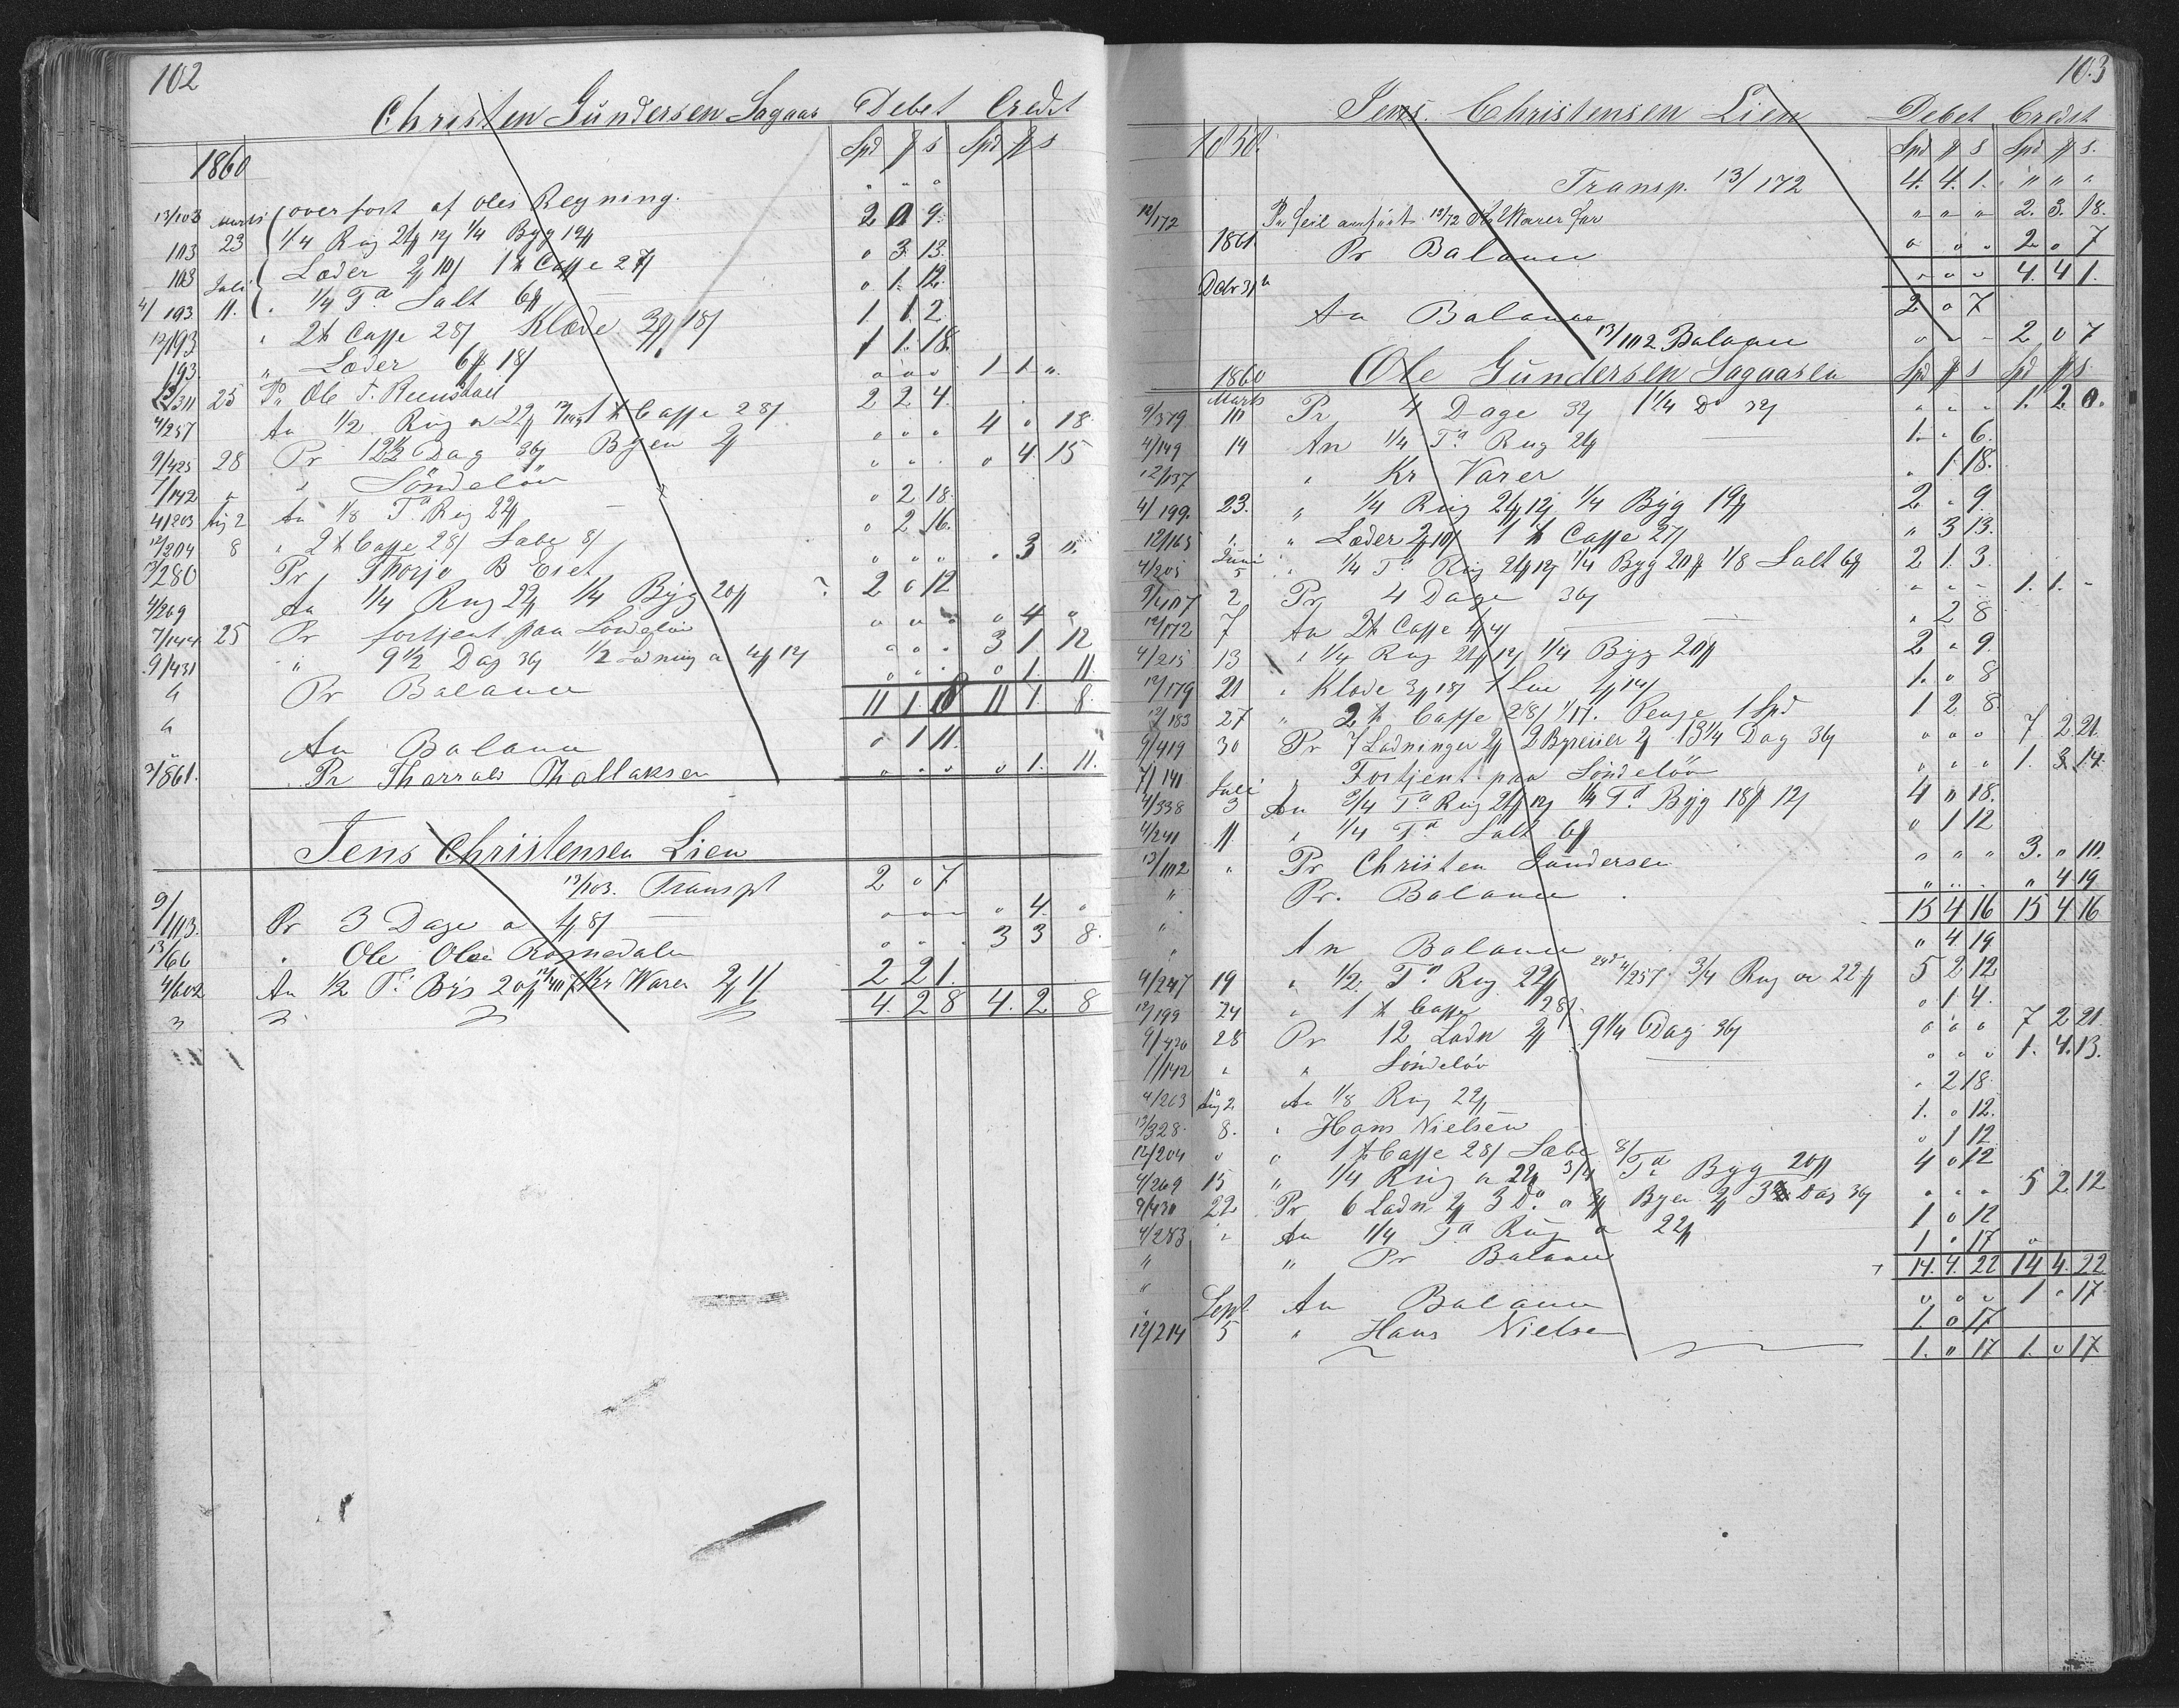 102
Christen Gundersen Sagaas Debet Credit
1860 Spd ₰ s Spd ₰ s
overført af Oles Regning.
13/103 Marts 23 1/4 Rug 24 12 1/4 Byg 19 2 0 9
103 Læder 2 10 1 Caffe 27 " 3 13
103 Juli 1/4 Ta Salt 6 " 1 12
4/193 11. " 2 Caffe 28 Klæde 3 18 1 1 2
12/193 " Læder 6 18 1 1 18
193. Pr Ole T. 1 1 "
13/311 25 An 1/2 Rug a 22 1 Caffe 28 2 2 4
4/257 Pr 12 1/2 Dag 36 Byen 2 4 " 18
9/425 28 " Søndeløv " 4 15
7/142 "
4/203 Aug 2 An 1/8 Ta Rug 22 " 2 18
12/204 8 " 2 Caffe 28 Sæbe 8 " 2 16
13/280 Pr Thorje B Eset " 3 "
4/269 An 1/4 Rug 22 1/4 Byg 20 2 0 12
7/144 25 Pr fortjent paa Søndeløv " 4 "
9/431 " 9 1/2 Dag 36 1/2 Ladning a 4 12 3 1 12
" Pr Balance " 1. 11.
11 1 8 11 1. 8.
" An Balance " 1 11.
1861. Pr Tharrald Thollaksen " 1. 11.
Jens Christensen Lien
13/103. Transpt 2 " 7
9/113. Pr 3 Dage a 4 8 " 4. "
13/66 " Ole Olsen Romedalen 3 3 8.
4/602 An 1/2 Ta Byg 20 Kr Varer 2 1 2 2 1.
4. 2 8 4. 2 8
103
Jens Christensen Lien Debet Credit
1858. Spd ₰ s Spd ₰ s.
Transp. 13/172 4. 4. 1. " " "
12/172 Pr feil anført 12/72 Kr Varer for " " " 2. 3. 18.
1861 Pr Balance " " " 2 " 7
" " " 4. 4 1.
Debr 31 An Balance 2 " 7
13/102 Balance " " " 2 0 7
1860 Ole Gundersen Sagaasen Spd ₰ s Spd ₰ s
9/379 Marts 10 Pr 4 Dage 32 1 1/4 Do 32 " " " 1. 2 0.
4/149 14 An 1/4 Ta Rug 24 1. " 6.
12/137 " Kr Varer " 1 18.
4/199. 23. " 1/4 Rug 24 12 1/4 Byg 19 2 " 9
12/165 " " Læder 2 10 1 Caffe 27 " 3 13.
4/205 Juni 5 " 1/4 Ta Rug 24 12 1/4 Byg 20 1/8 Salt 6 2 1. 3.
9/407 2 Pr 4 Dage 36 " " " 1. 1. "
12/172 7 An 2 Caffe 4 " 2 8
4/215 13 " 1/4 Rug 24 12 1/4 Byg 20 2 " 9.
12/179 21 " Klæde 3 18 1 Lue 1 14 1. 0 8
12/183 27 " 2 Caffe 28 Penge 1 Spd 1 2 8.
9/419 30 Pr 7 Ladninger 2 2 Byreiser 2 13 1/4 Dag 36 " " " 7 2 21.
7/141 " Fortjent paa Søndeløv " " " 1. 3. 14.
4/338 Juli 3 An 3/4 Ta Rug 24 12 1/4 Ta Byg 18 12 4 " 18.
4/241 11. " 1/4 Ta Salt 6 " 1 12
13/102 " Pr Christen Gundersen " " " 3. " 10.
" Pr. Balance " " " " 4 19
15 4 16 15 4 16
" An Balance " 4 19
4/247 19 " 1/2 Ta Rug 22 4/257. 3/4 Rug a 22 5 2 12
12/199 24 " 1 Caffe 28 " 1 4.
9/426 28 Pr 12 Ladn 2 9 1/4 Dag 36 " " " 7 2 21.
7/142 " " Søndeløv " " " 1. 4. 13.
4/203 Aug 2 An 1/8 Rug 22 " 2 18
13/328. 8. " Hans Nielsen 1. " 12.
12/204 " " 1 Caffe 28 Sæbe 8 " 1 12
4/269 15 " 1/4 Rug a 22 3/4 Ta Byg 20 4 " 12
9/430 22 Pr 6 Ladn 2 3 Do a 3 Byen 2 3 Dag 36 " " " 5 2 12
4/283 " An 1/4 Ta Rug a 22 1 0 12
" " Pr Balance 1 " 17 "
14. 4. 22 14 4. 22
" An Balance " " " 1 " 17
12/214 Sept 5 " Hans Nielsen 1. 0 17
1. " 17 1. " 17